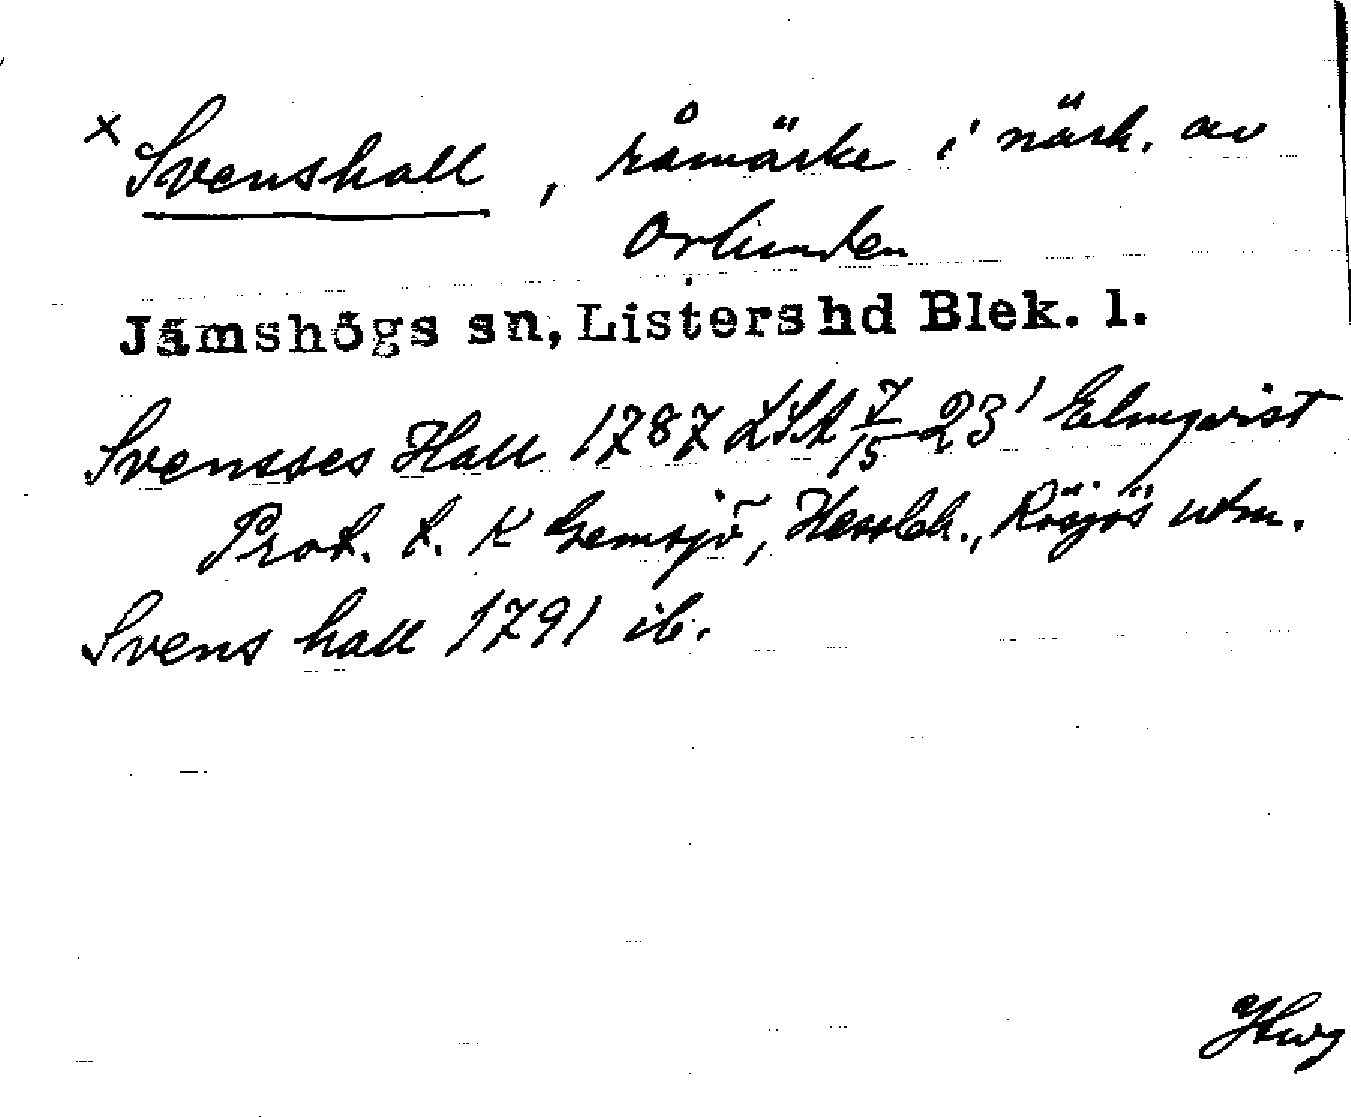 × Svenshall, råmärke i närh. av
Orlunden
Jämshögs sn, Listers hd Blek. l.
Svenses Hall 1787 LSA 7/15 23' Elmqvist
Prot. t. K Gemsjö, Hessleh., Rösjös utm.
Svens hall 1791 ib.